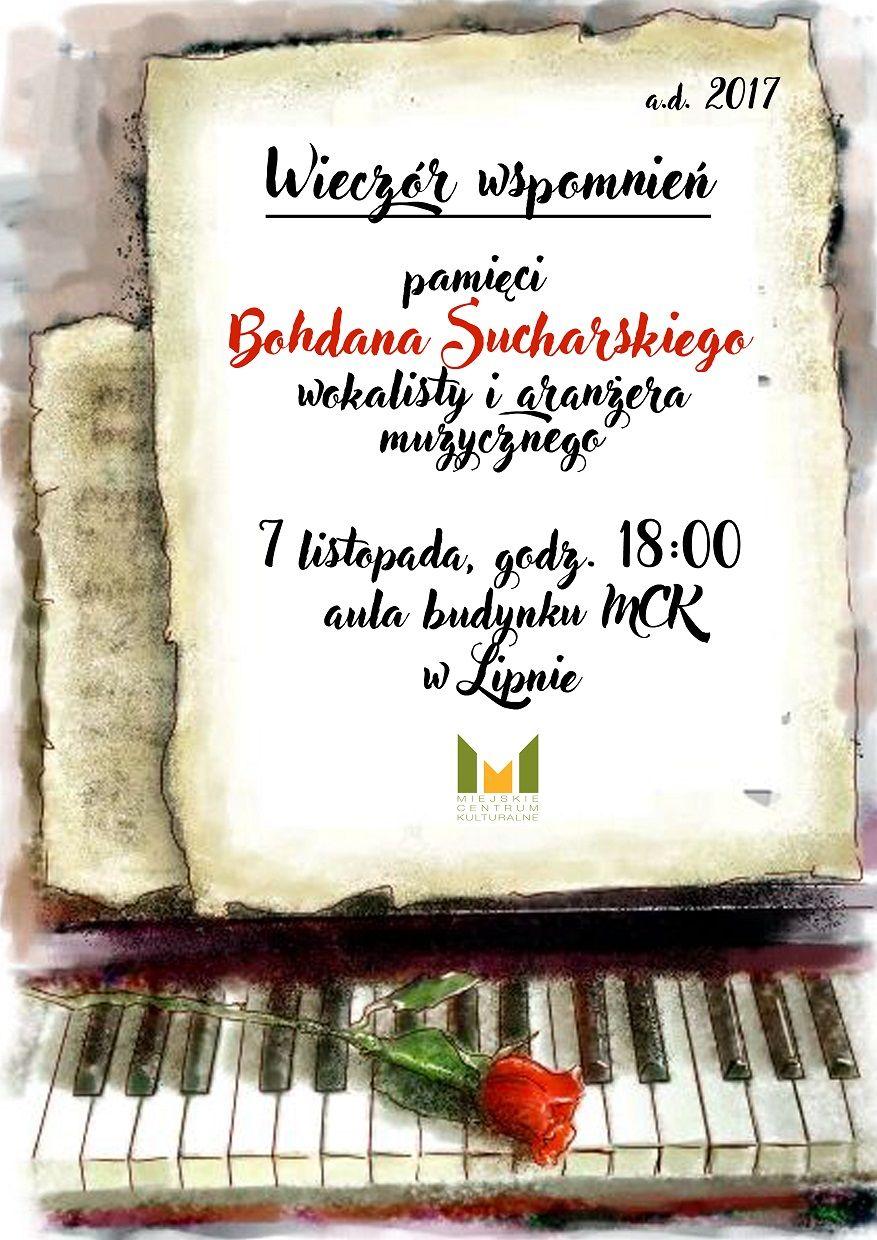 a.d. 2017
Wieczór wspomnień
pamięci
Bohdana Sucharskiego
wokalisty i aranżera
muzycznego
7 listopada, godz. 18:00
aula budynku MCK
w Lipnie
MIEJSKIE
CENTRUM
KULTURALNE